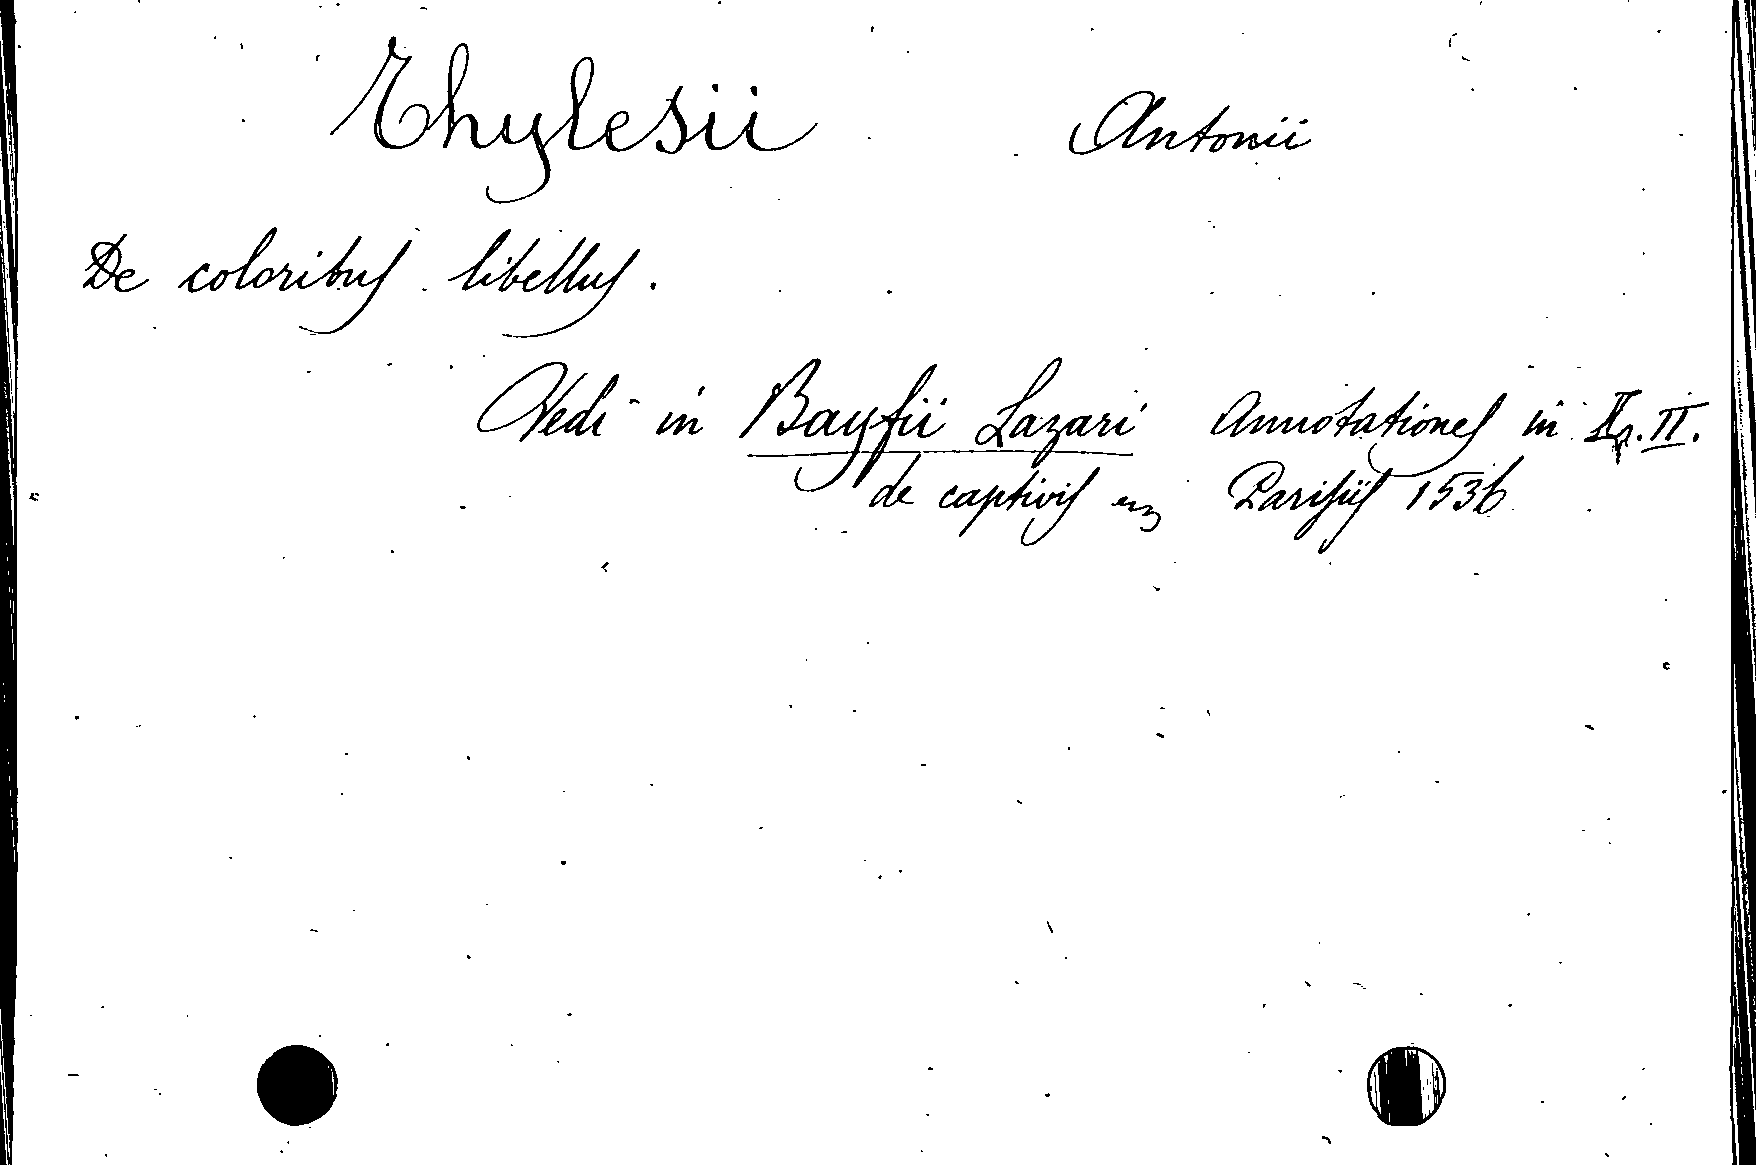 Thylesii Antonii
De coloribus libellus.
Vedi in Bayfii Lazari Annotationes in L. II.
de captivis Parisiis 1536